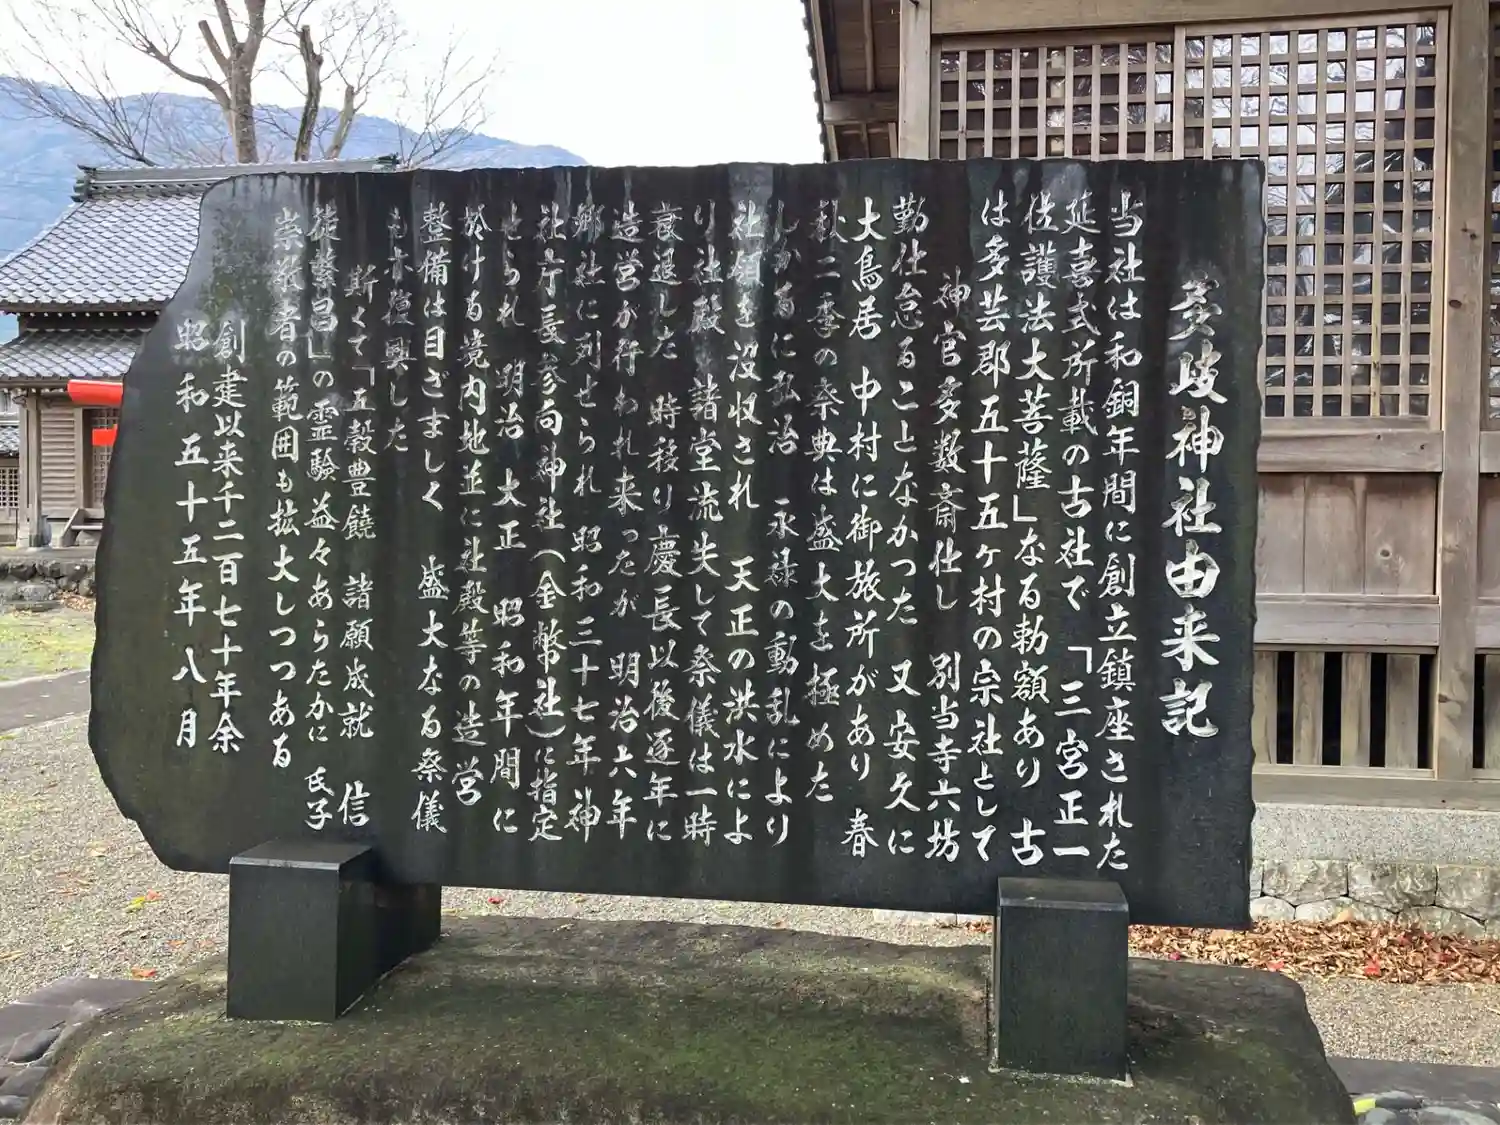 多岐神社由来記
当社は和銅年間に創立鎮座された
延喜式所載の古社で「三宮正一
位護法大菩薩」なる勅額あり 古
は多芸郡五十五ヶ村の宗社として
神官多数斎仕し 別当寺六坊
勤仕怠ることなかつた 又安久に
大鳥居 中村に御旅所があり 春
秋二季の祭典は盛大を極めた
しかるに弘治 永禄の動乱により
社領を没収され 天正の洪水によ
り社殿 諸堂流失して祭儀は一時
衰退した 時移り慶長以後逐年に
造営が行われ来ったが 明治六年
郷社に列せられ 昭和三十七年神
社庁長参向神社(金幣社)に指定
せられ 明治 大正 昭和年間に
於ける境内地並に社殿等の造営
整備は目ざましく 盛大なる祭儀
も亦復興した
斯くて「五穀豊饒 諸願成就 信
徒繁昌」の霊験益々あらたかに 氏子
崇敬者の範囲も拡大しつつある
創建以来千二百七十年余
昭和五十五年八月